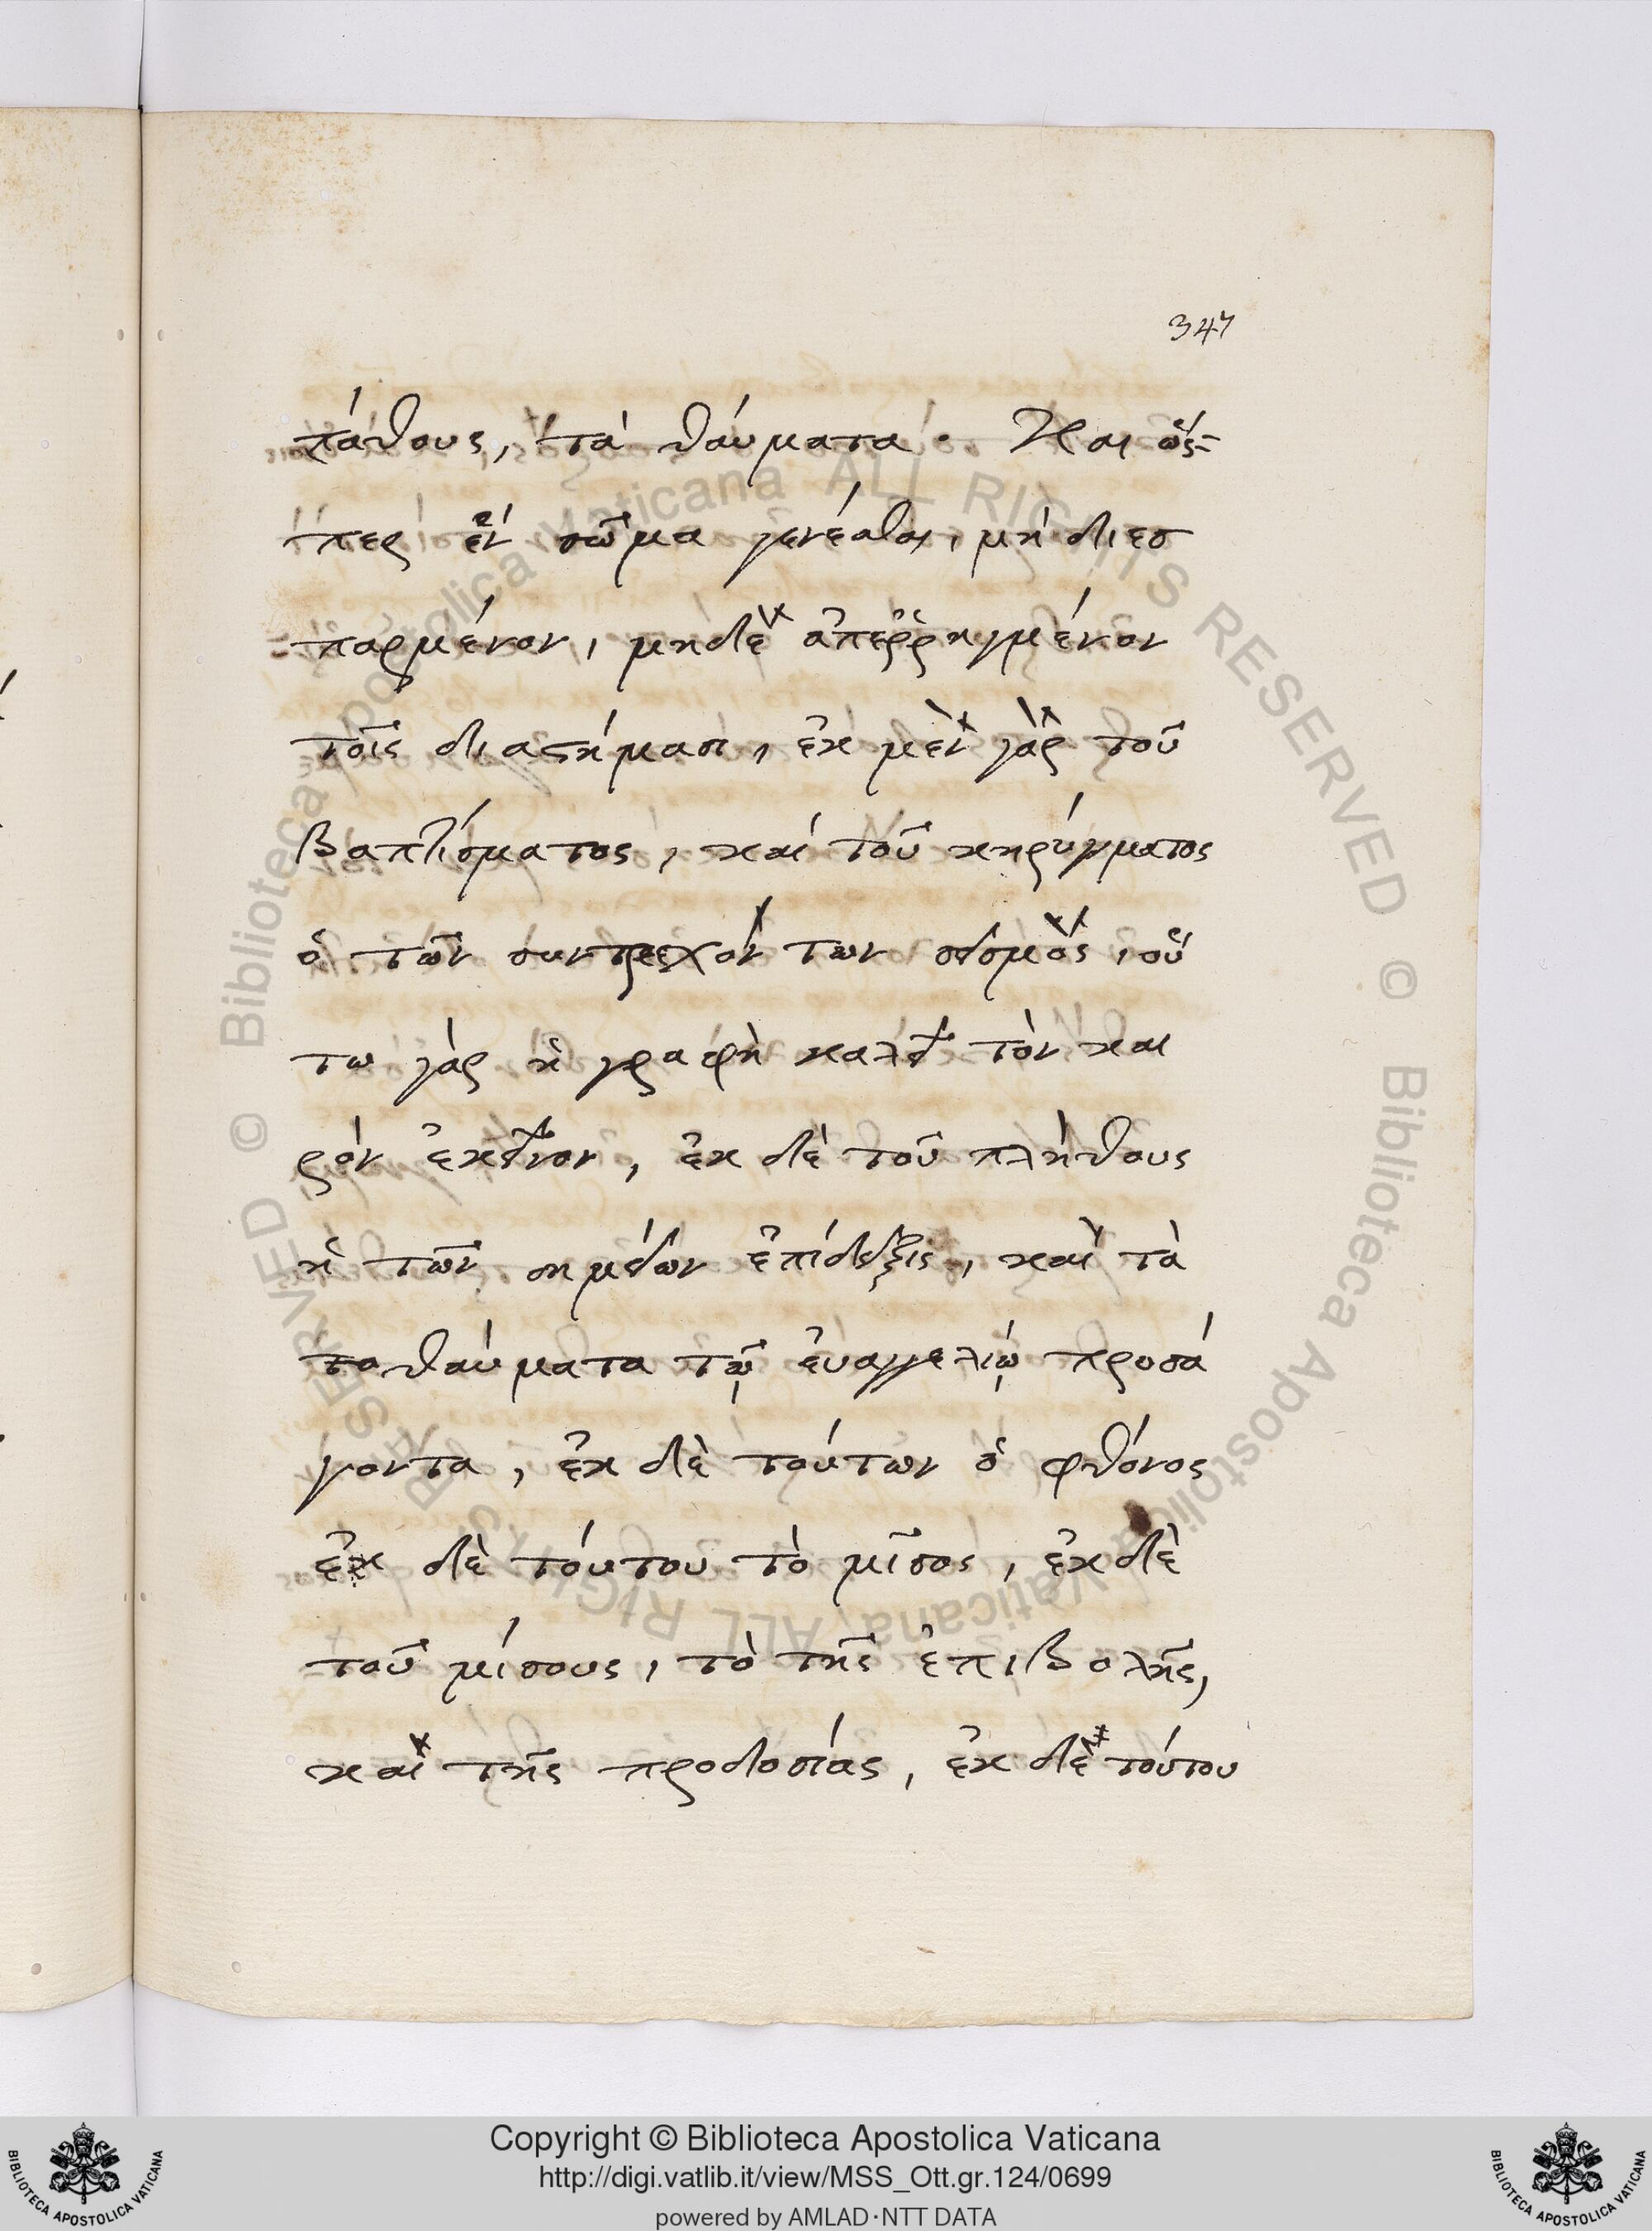 347
πάθους, τὰ θαύματα. Καὶ ὥς=
περ ἓν σῶμα γενέσθαι, μὴ διεσ
παρμένον, μηδὲ ἀπεῤῥηγμένον
τοῖς διαστήμασι, ἐκ μὲν γὰρ τοῦ
βαπτίσματος, καὶ τοῦ κηρύγματος
ὁ τῶν συντρεχόντων σεισμὸς, οὕ
τω γὰρ ἡ γραφὴ καλεῖ τὸν και
ρὸν ἐκεῖνον, ἐκ δὲ τοῦ πλήθους
ἡ τῶν σημείων ἐπίδειξις, καὶ τὰ
τα θαύματα τῷ ἐυαγγελίῳ προσά
γοντα, ἐκ δὲ τούτων ὁ φθόνος
ἐκ δὲ τόυτου τὸ μῖσος, ἐκ δὲ
τοῦ μίσους, τὸ τῆς ἐπιβολῆς,
καὶ τῆς προδοσίας, ἐκ δὲ τούτου
© Biblioteca Apostolica Vaticana ALL RIGHTS RESERVED © Biblioteca Apostolica Vaticana ALL RIGHTS RESERVED
Copyright © Biblioteca Apostolica Vaticana
http://digi.vatlib.it/view/MSS_Ott.gr.124/0699
powered by AMLAD·NTT DATA
BIBLIOTECA APOSTOLICA VATICANA
BIBLIOTECA APOSTOLICA VATICANA